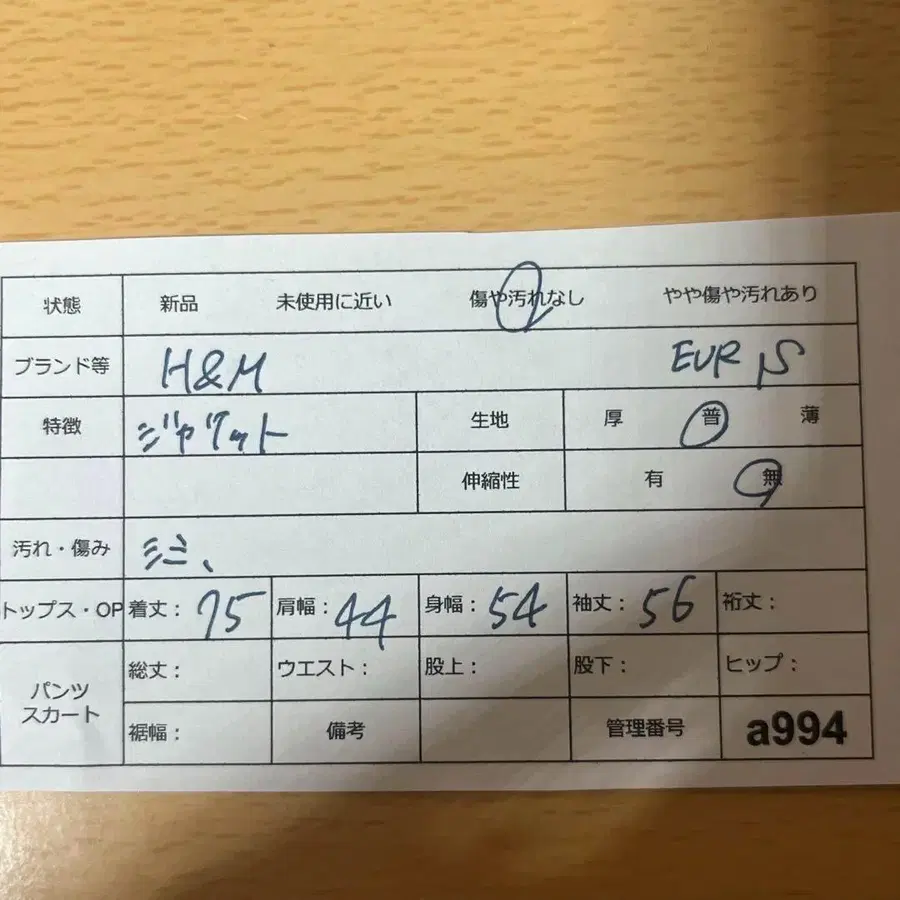 状態 新品 未使用に近い 傷や汚れなし やや傷や汚れあり
ブランド等 H&M EUR S
特徴 ジャケット 生地 厚 普 薄
伸縮性 有 無
汚れ・傷み
トップス・OP 着丈： 75 肩幅： 44 身幅： 54 袖丈： 56 裄丈：
パンツ スカート 総丈： ウエスト： 股上： 股下： ヒップ：
裾幅： 備考 管理番号 a994